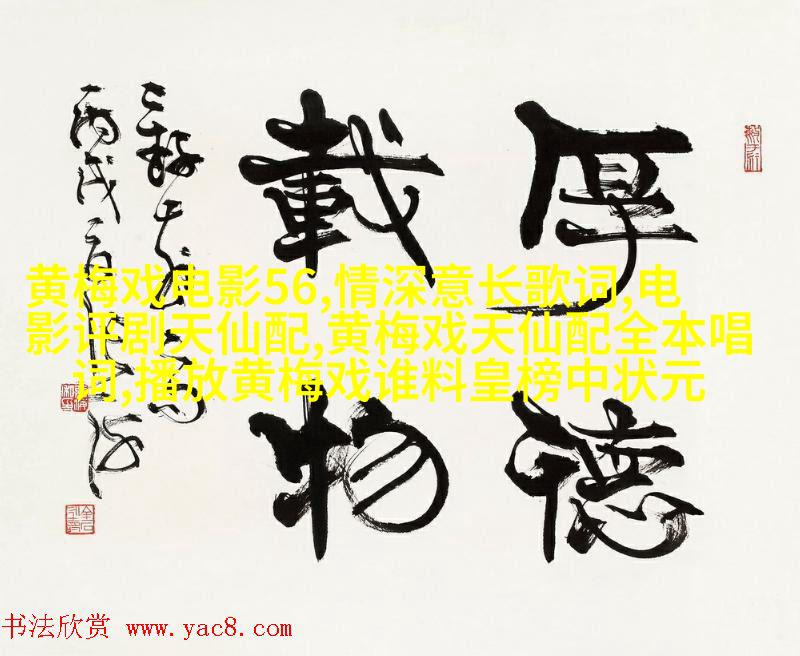 厚德
載物
丙戌
黄梅戏电影56,情深意长歌词,电
影评剧天仙配,黄梅戏天仙配全本唱
词,播放黄梅戏谁料皇榜中状元
书法欣赏 www.yac8.com